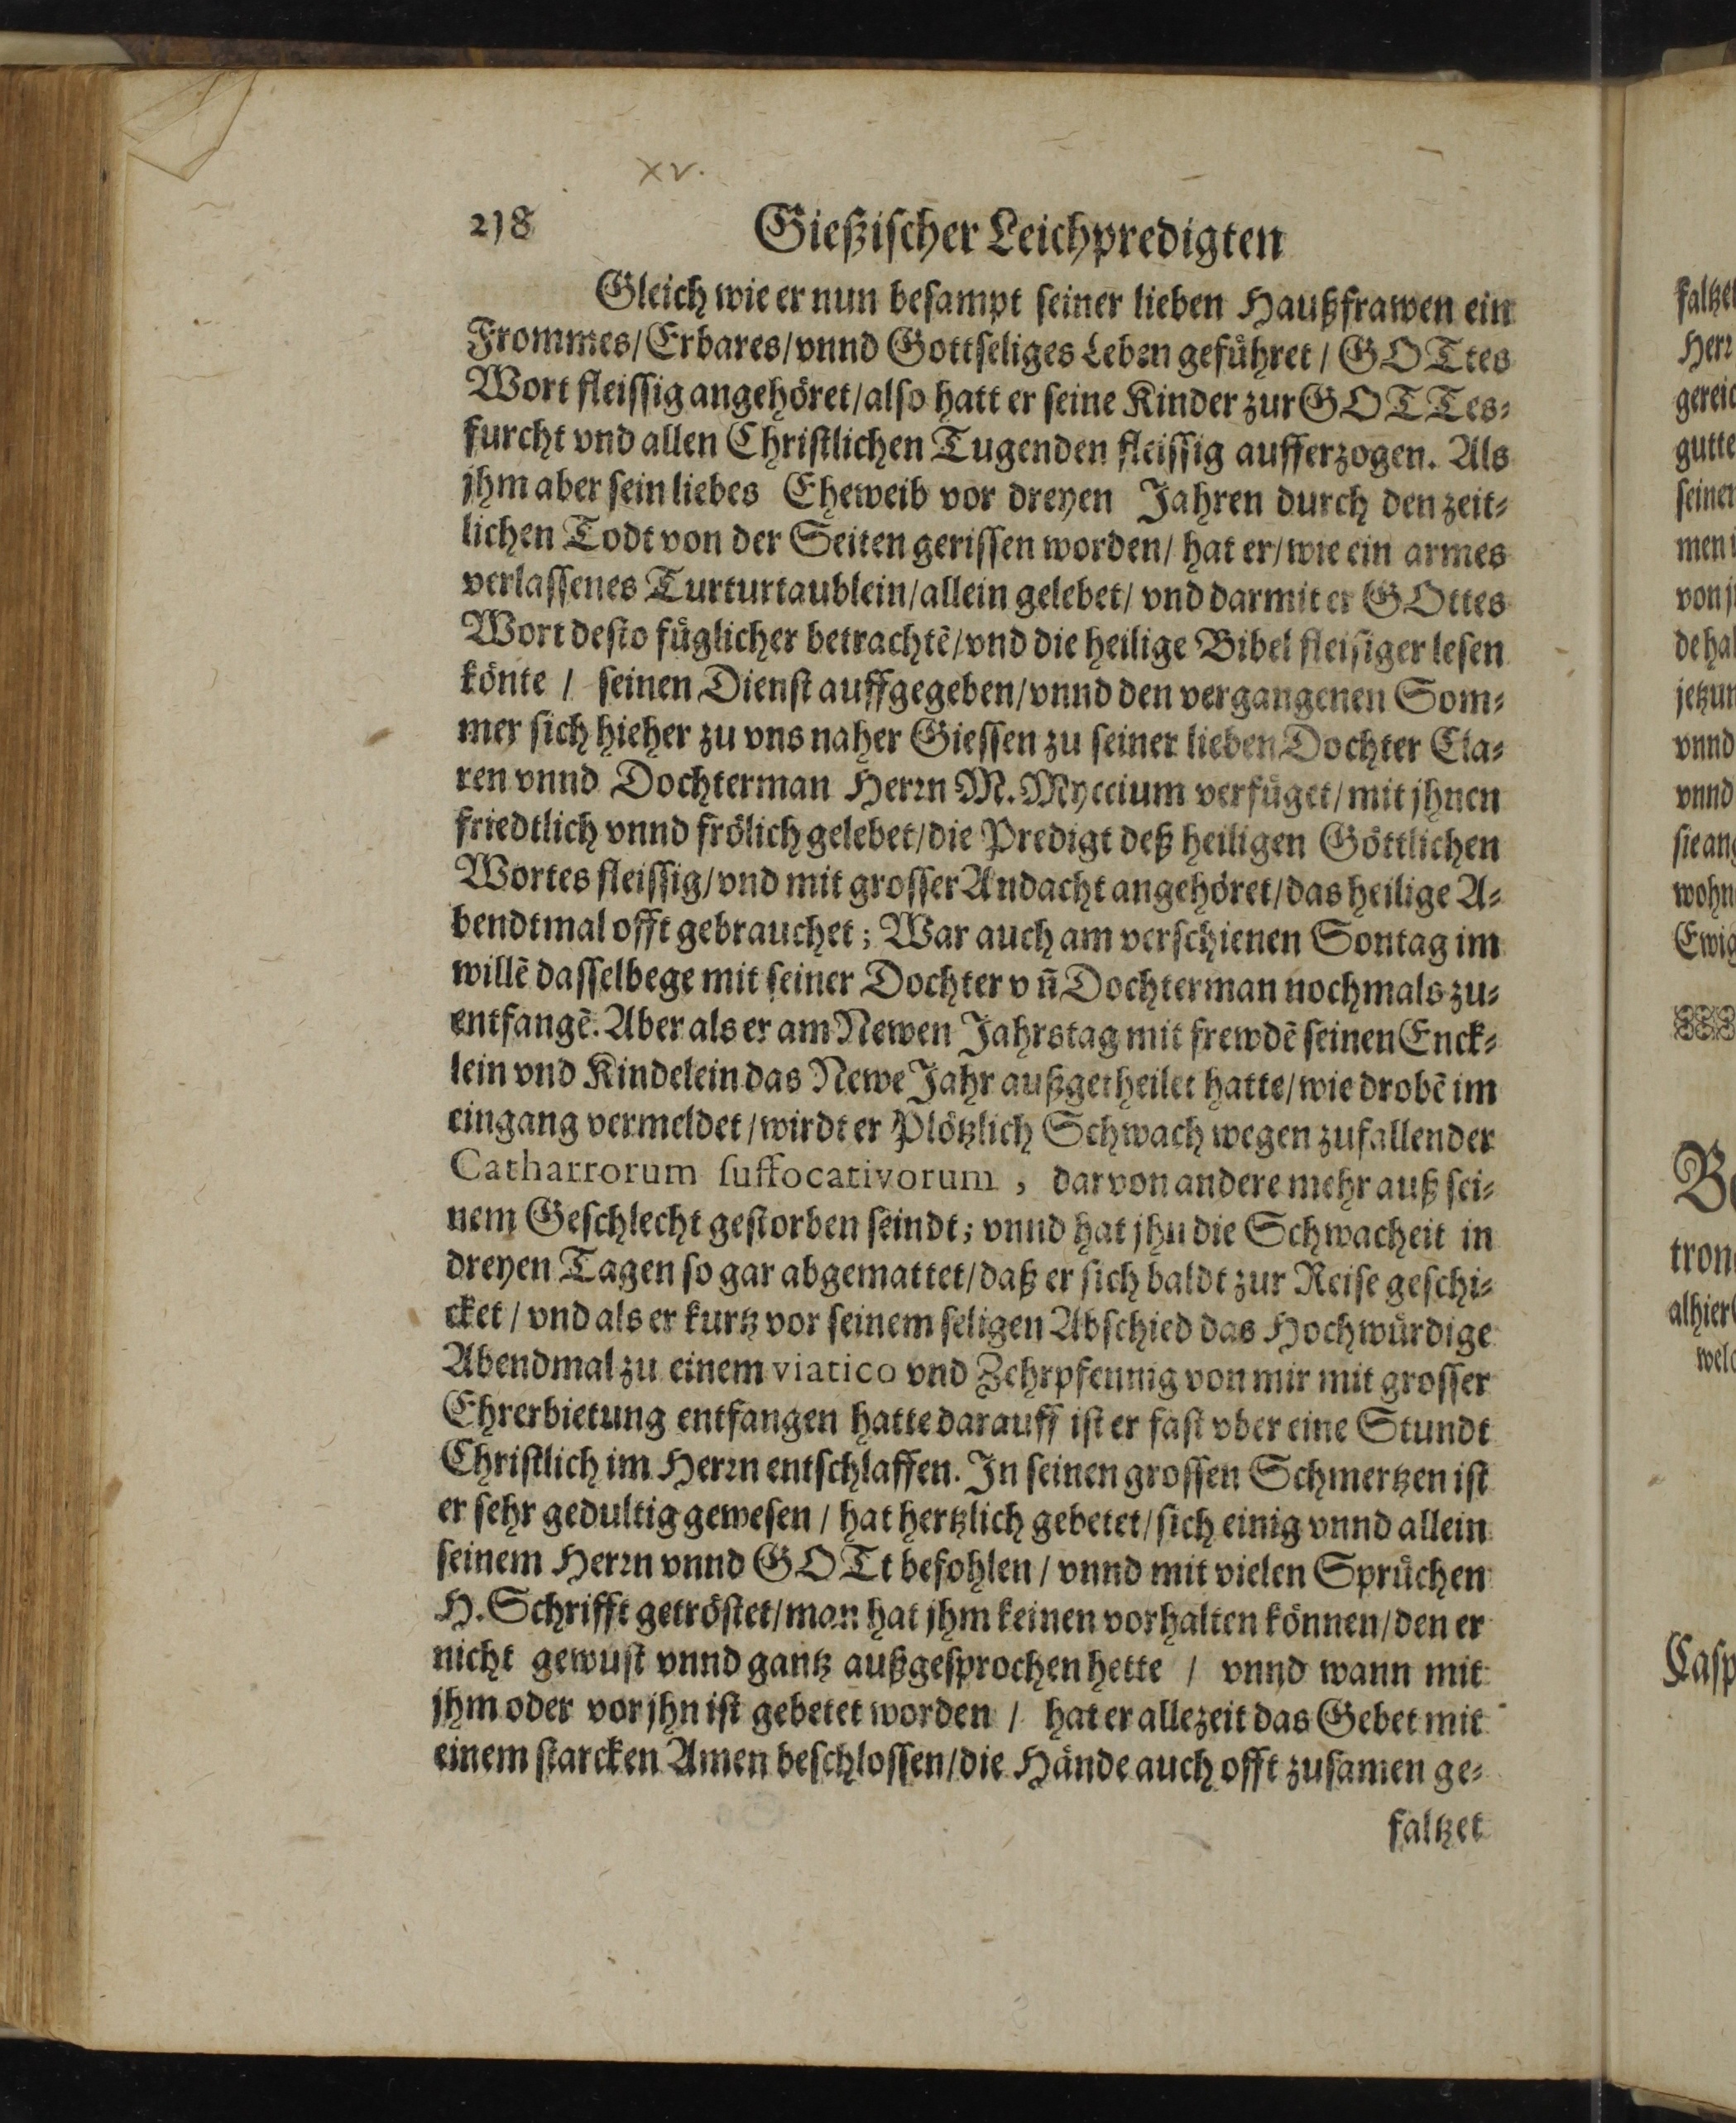 XV.
218 Gießischer Leichpredigten
Gleich wie er nun besampt seiner lieben Haußfrawen ein
Frommes/ Erbares/ vnnd Gottseliges Leben geführet / GOTtes
Wort fleissig angehöret/ also hatt er seine Kinder zur GOTTes-
furcht vnd allen Christlichen Tugenden fleissig aufferzogen. Als
jhm aber sein liebes Eheweib vor dreyen Jahren durch den zeit-
lichen Todt von der Seiten gerissen worden/ hat er/ wie ein armes
verlassenes Turturtaublein/ allein gelebet/ vnd darmit er GOttes
Wort desto füglicher betrachtē/ vnd die heilige Bibel fleisiger lesen
könte / seinen Dienst auffgegeben/ vnnd den vergangenen Som-
mer sich hieher zu vns naher Giessen zu seiner lieben Dochter Cla-
ren vnnd Dochterman Herrn M. Myccium verfüget/ mit jhnen
friedtlich vnnd frölich gelebet/ die Predigt deß heiligen Göttlichen
Wortes fleissig/ vnd mit grosser Andacht angehöret/ das heilige A-
bendtmal offt gebrauchet; War auch am verschienen Sontag im
willē dasselbege mit seiner Dochter vn̄ Dochterman nochmals zu-
entfangē. Aber als er am Newen Jahrstag mit frewdē seinen Enck-
lein vnd Kindelein das Newe Jahr außgetheilet hatte/ wie drobē im
eingang vermeldet / wirdt er Plötzlich Schwach wegen zufallender
Catharrorum suffocativorum, darvon andere mehr auß sei-
nem Geschlecht gestorben seindt; vnnd hat jhn die Schwacheit in
dreyen Tagen so gar abgemattet/ daß er sich baldt zur Reise geschi-
cket / vnd als er kurtz vor seinem seligen Abschied das Hochwürdige
Abendmal zu einem viatico vnd Zehrpfennig von mir mit grosser
Ehrerbietung entfangen hatte darauff ist er fast vber eine Stundt
Christlich im Herrn entschlaffen. In seinen grossen Schmertzen ist
er sehr gedultig gewesen / hat hertzlich gebetet/ sich einig vnnd allein
seinem Herrn vnnd GOTt befohlen / vnnd mit vielen Sprüchen
H. Schrifft getröstet/ man hat jhm keinen vorhalten können/ den er
nicht gewust vnnd gantz außgesprochen hette / vnnd wann mit
jhm oder vor jhn ist gebetet worden / hat er allezeit das Gebet mit
einem starcken Amen beschlossen/ die Hände auch offt zusamen ge-
faltzet